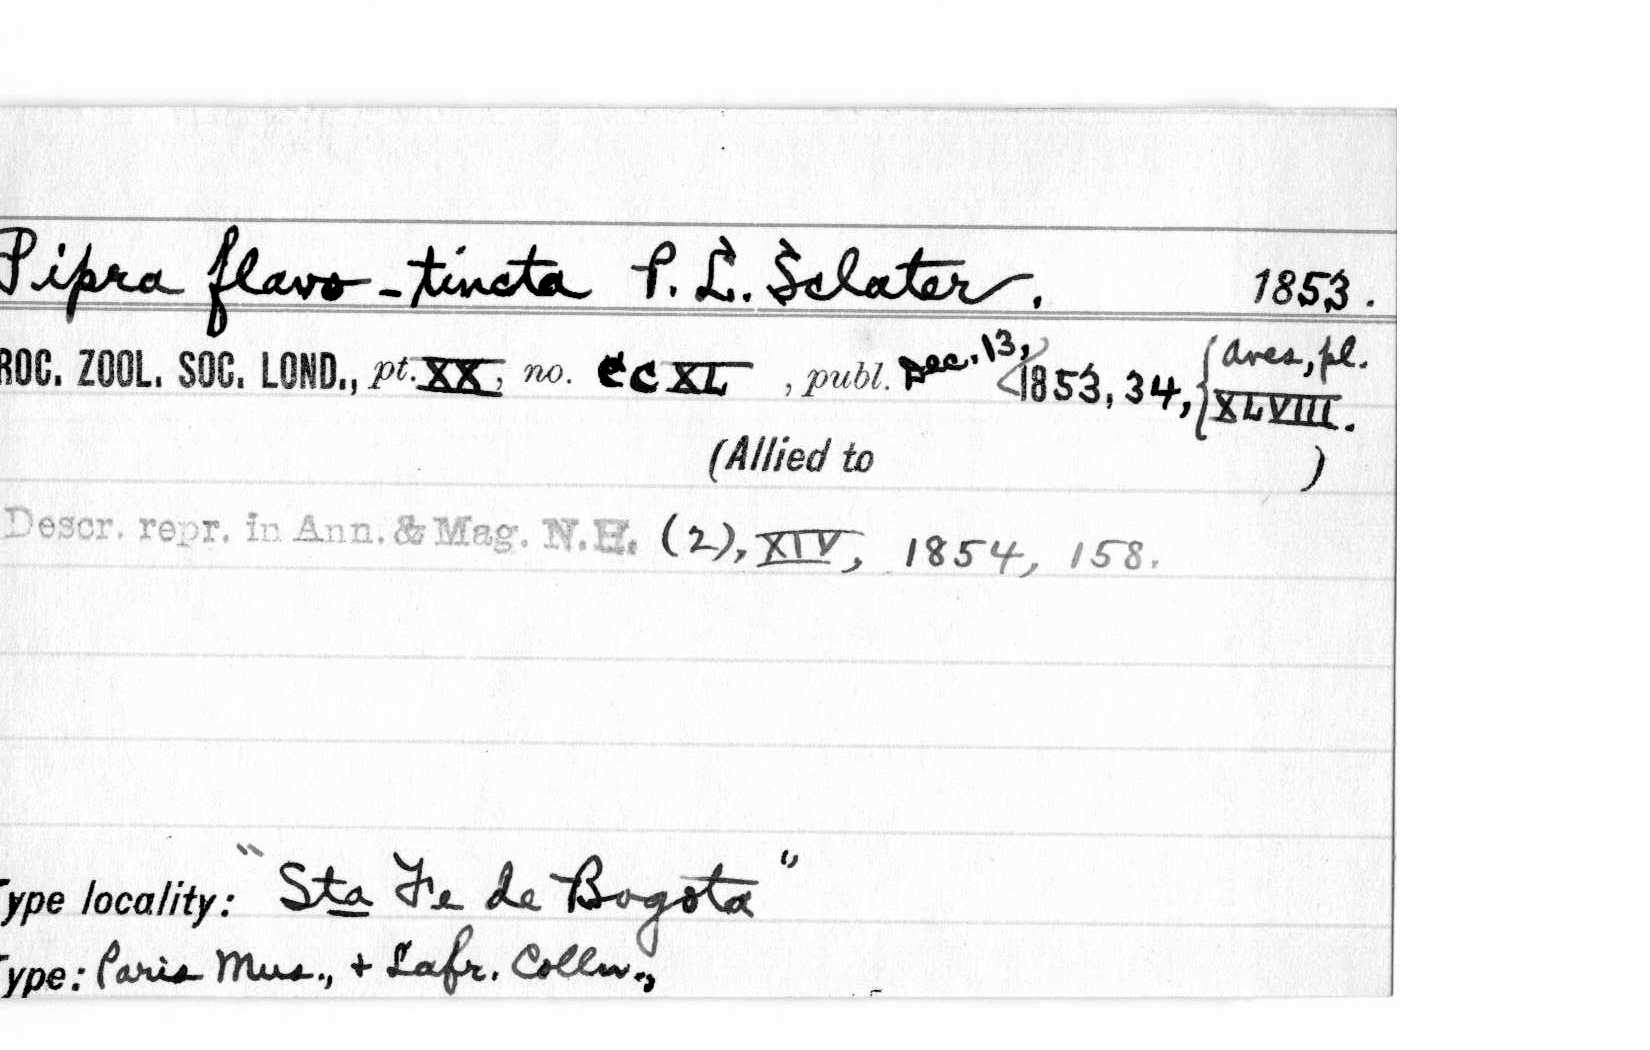 Pipra flavo-tincta P. L. Sclater. 1853.
ROC. ZOOL. SOC. LOND., pt. XX, no. CCXL, publ. Dec. 13, 1853, 34, {Aves, pl. XLVIII.
(Allied to )
Descr. repr. in Ann. & Mag. N.H. (2), XIV, 1854, 158.
Type locality: "Sta Fe de Bogota"
Type: Paris Mus., + Lafr. Colln.,